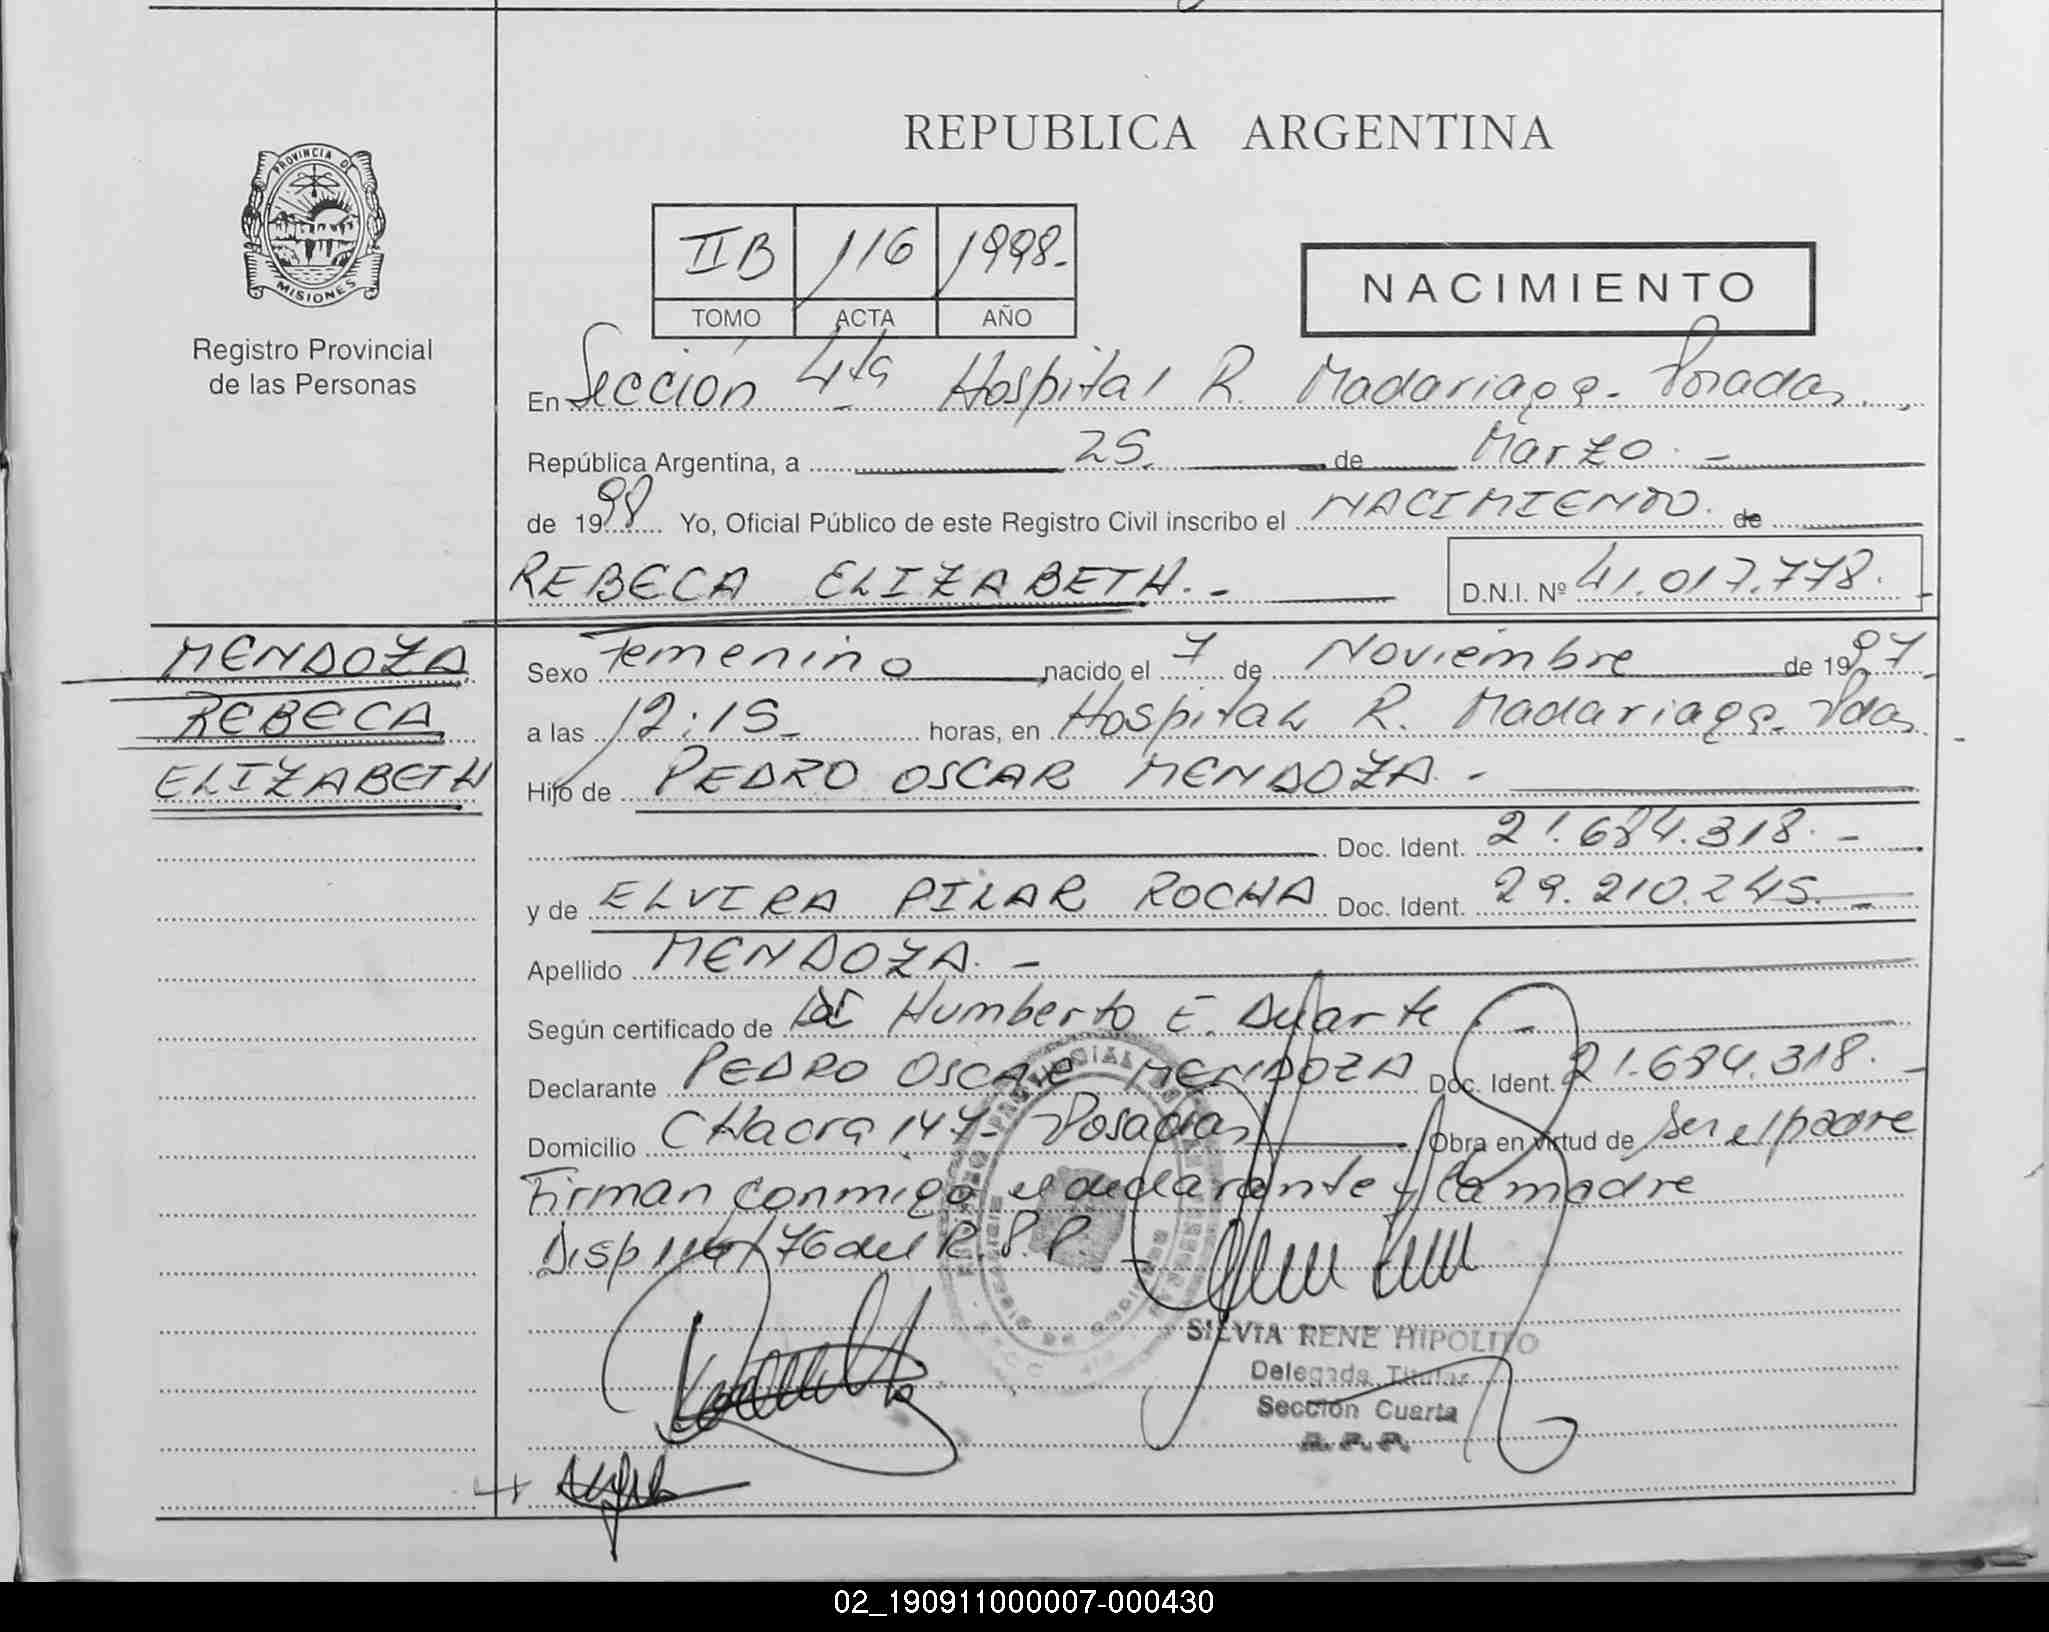 REPUBLICA ARGENTINA
PROVINCIA DE
MISIONES
Registro Provincial
de las Personas
II B 116 1998.-
TOMO ACTA AÑO
NACIMIENTO
En Sección 4ta Hospital R. Madariaga - Posadas
República Argentina, a 25 de Marzo. -
de 1998 Yo, Oficial Público de este Registro Civil inscribo el NACIMIENTO. de
REBECA ELIZABETH. - D.N.I. Nº 41.017.778.
MENDOZA
REBECA
ELIZABETH
Sexo femenino nacido el 7 de Noviembre de 1997
a las 12:15 horas, en Hospital R. Madariaga - Pdas
Hijo de PEDRO OSCAR MENDOZA. -
Doc. Ident. 21.684.318. -
y de ELVIRA PILAR ROCHA Doc. Ident. 29.210.245. -
Apellido MENDOZA. -
Según certificado de Humberto E. Duarte -
Declarante PEDRO OSCAR MENDOZA Doc. Ident. 21.684.318. -
Domicilio CHacra 147- Posadas Obra en virtud de ser el padre
Firman conmigo el declarante y la madre
Disp 116/76 del R.P.P.
SILVIA RENE HIPOLITO
Delegada Titular
Sección Cuarta
R. P. P.
02_190911000007-000430